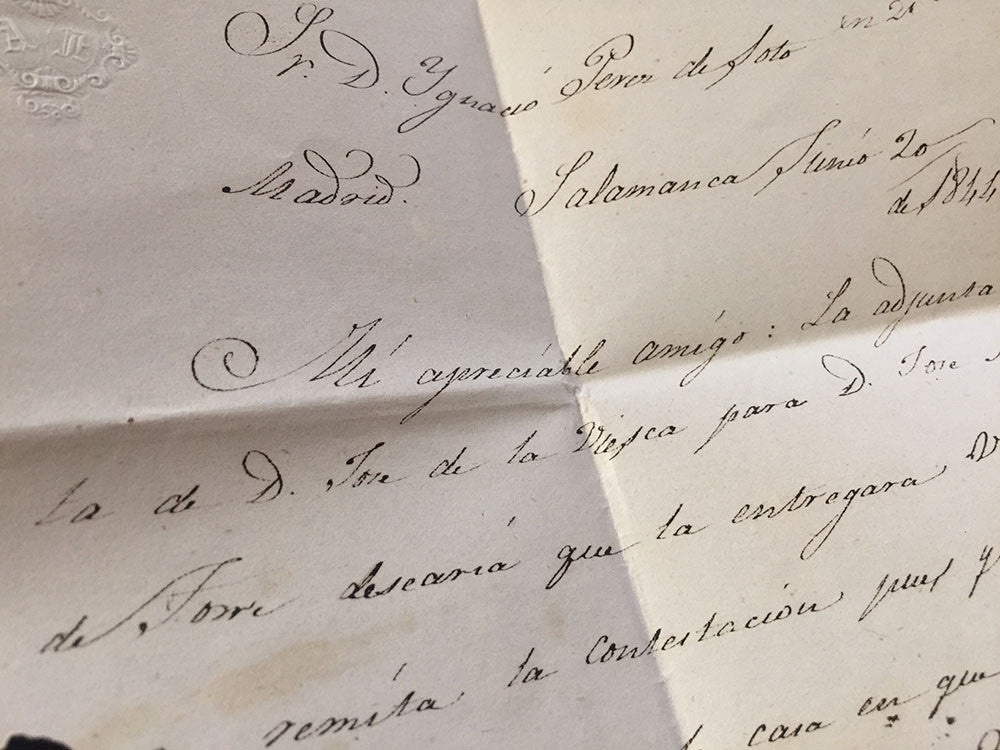 Sr. D. Ygnació Perez de Soto en 21
Madrid. Salamanca Junió 20
de 1844
Mi apreciable amigo: La adjunta
ta de D. Jose de la Viesca para D. Jose
de Torre desearia que la entregara V
remita la contestación pues
casa en que